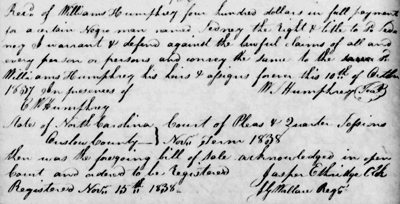 Recd of Williams Humphrey four hundred dollars in full payment
for a certain Negro man named Sedney the right & title to sd Sed
ney I warrant & defend against the lawful claims of all and
every person or persons and convey the same to the sd
Williams Humphrey his heirs & assigns forever this 10th of October
1837 In presences of W. Humphrey
E W Humphrey
State of North Carolina Court of Pleas & Quarter Sessions
Onslow County } Nov. Term 1838
then was the foregoing bill of sale acknowledged in open
Court and ordered to be registered Jasper Ethridge Clk
Registered Nov. 15th 1838 Wallace Regr